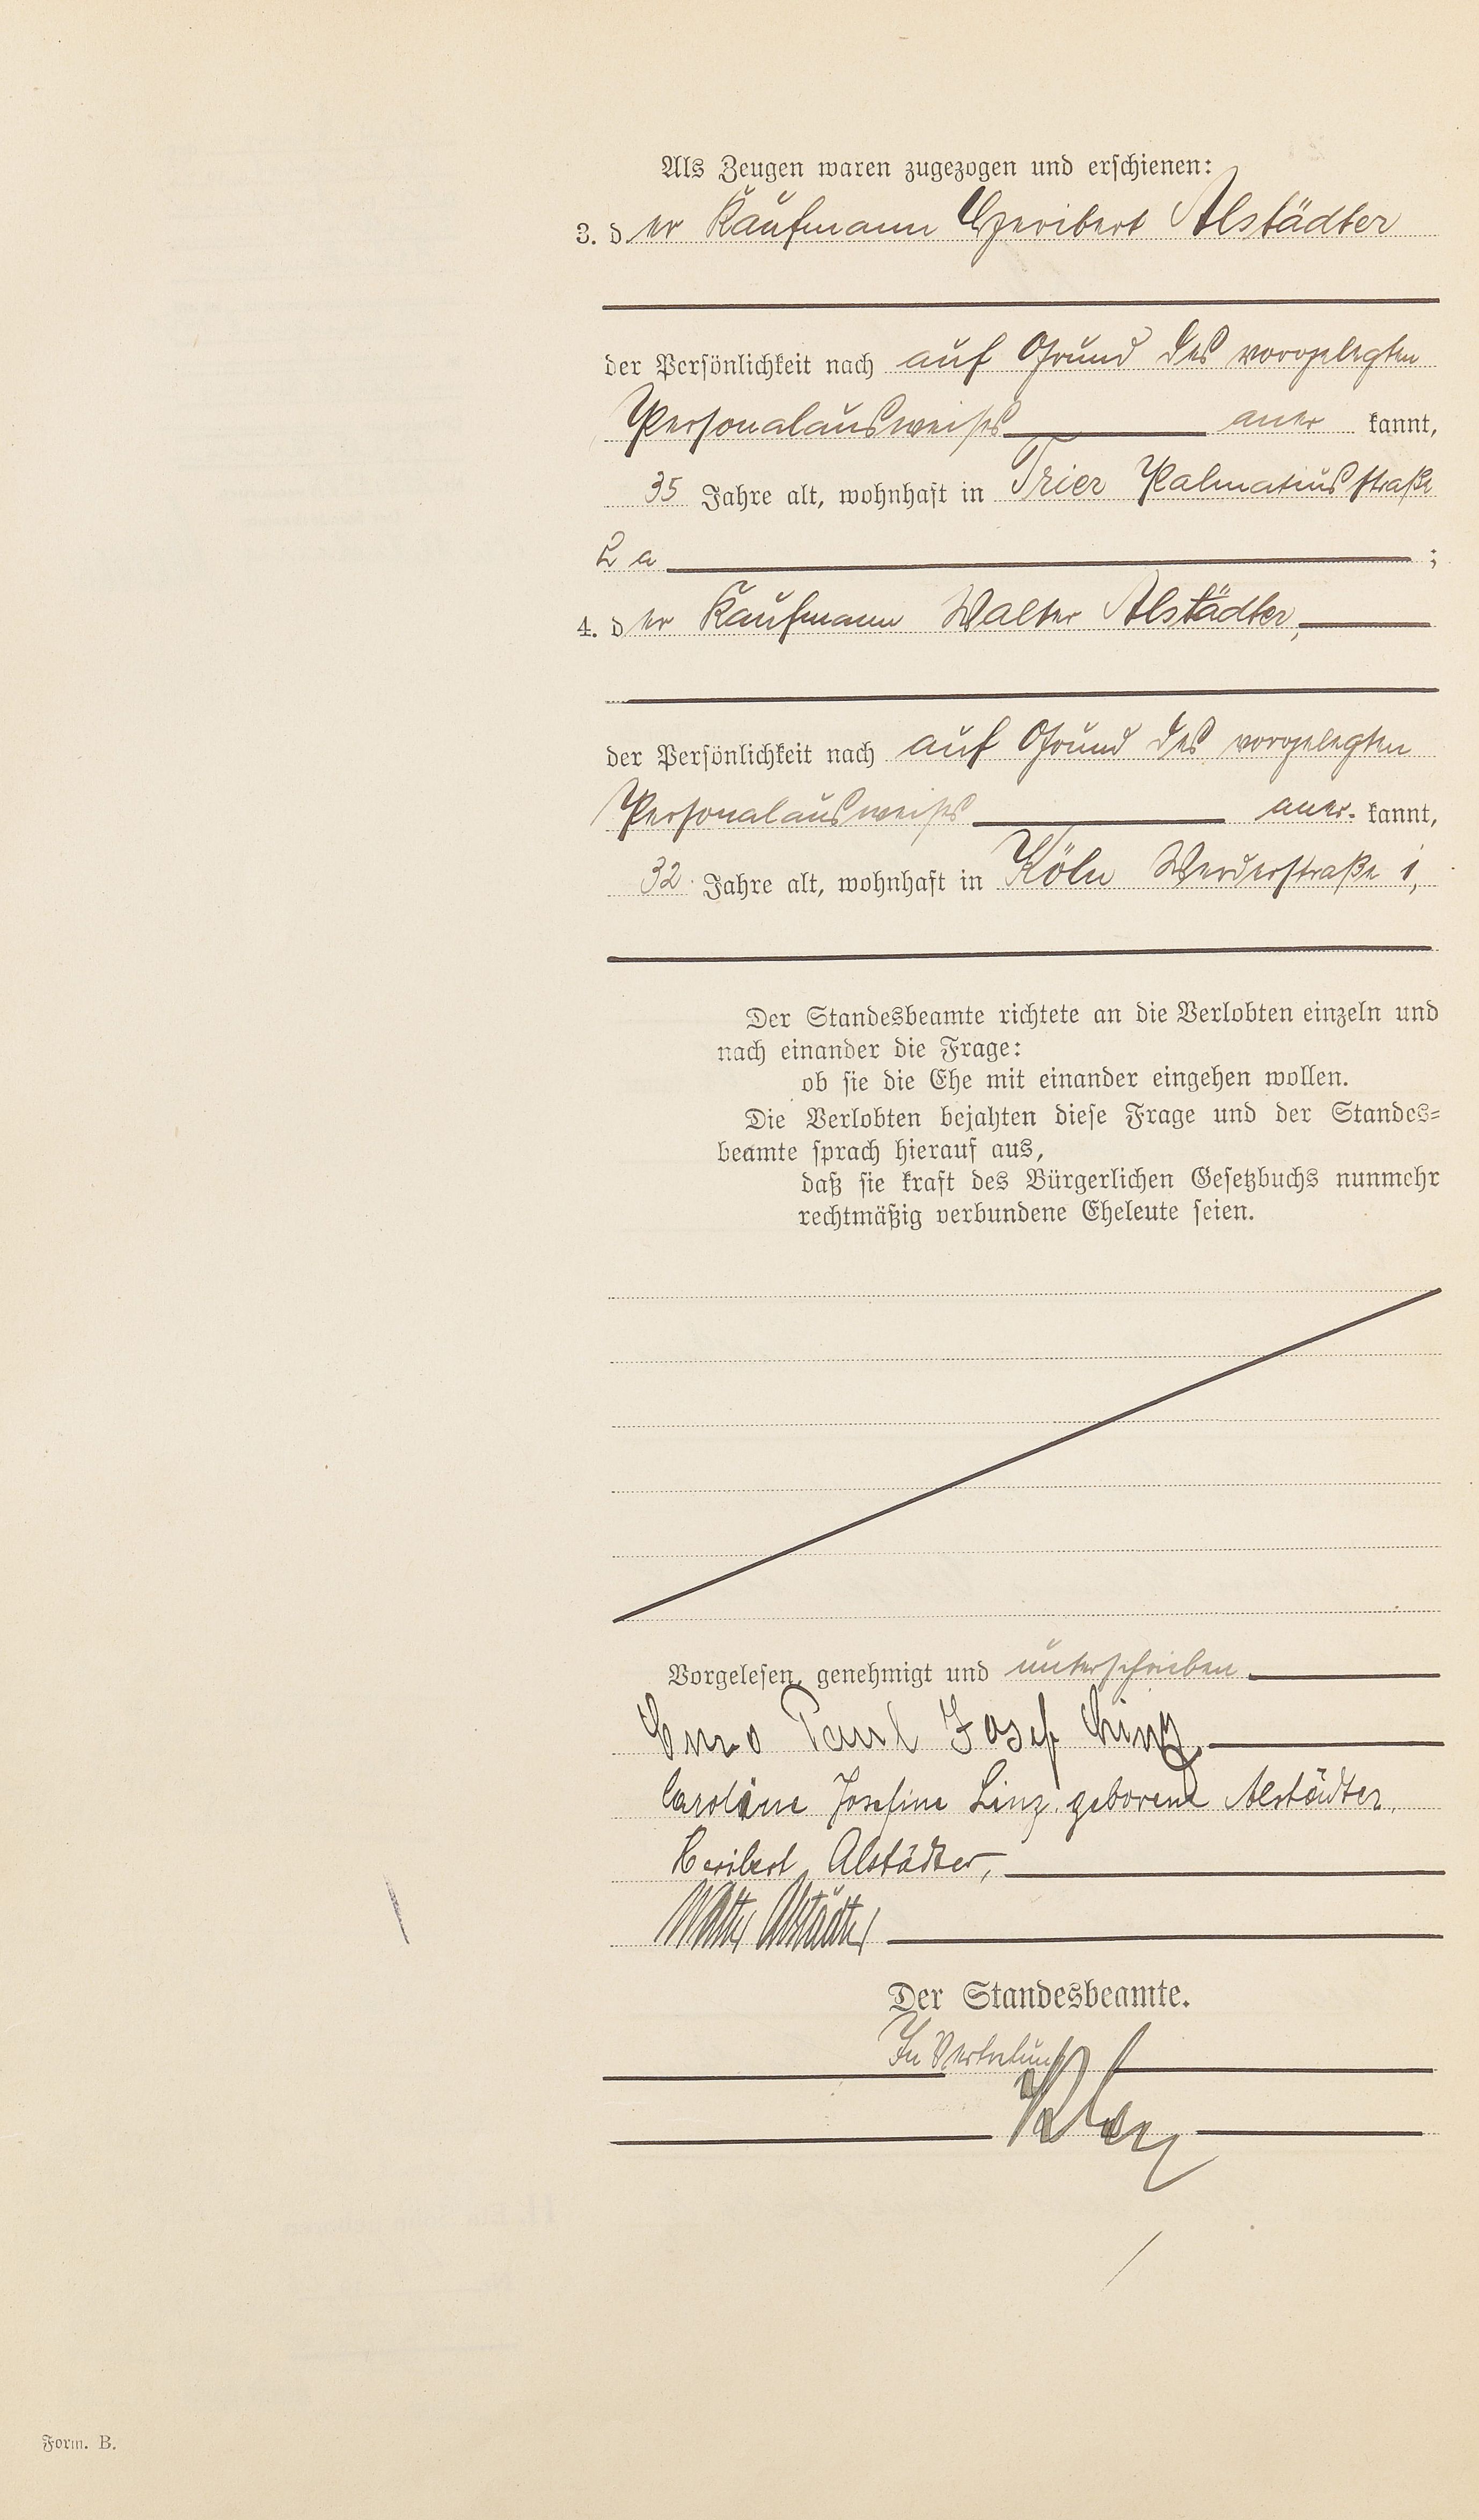 Als Zeugen waren zugezogen und erschienen:
3. der Kaufmann Heribert Alstädter
der Persönlichkeit nach auf Grund des vorgelegten
Personalausweises aner kannt,
35 Jahre alt, wohnhaft in Trier Palmatiusstraße
2 a ;
4. der Kaufmann Walter Alstädter,
der Persönlichkeit nach auf Grund des vorgelegten
Personalausweises aner. kannt,
32 Jahre alt, wohnhaft in Köln Werderstraße 1,
Der Standesbeamte richtete an die Verlobten einzeln und
nach einander die Frage:
ob sie die Ehe mit einander eingehen wollen.
Die Verlobten bejahten diese Frage und der Standes=
beamte sprach hierauf aus,
daß sie kraft des Bürgerlichen Gesetzbuchs nunmehr
rechtmäßig verbundene Eheleute seien.
Vorgelesen, genehmigt und unterschrieben
Paul Josef Linz
Caroline Josefine Linz geborene Alstädter,
Heribert Alstädter,
Walter Alstädter
Der Standesbeamte.
In Vertretung
Form. B.